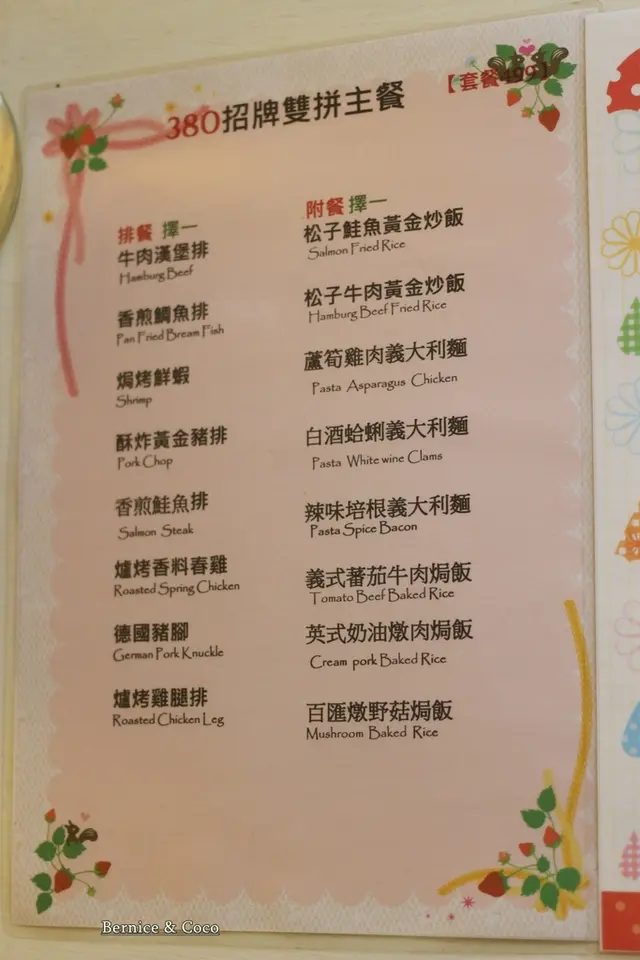 【套餐
380招牌雙拼主餐
排餐 擇一
牛肉漢堡排
Hamburg Beef
香煎鯛魚排
Pan Fried Bream Fish
焗烤鮮蝦
Shrimp
酥炸黃金豬排
Pork Chop
香煎鮭魚排
Salmon Steak
爐烤香料春雞
Roasted Spring Chicken
德國豬腳
German Pork Knuckle
爐烤雞腿排
Roasted Chicken Leg
附餐 擇一
松子鮭魚黃金炒飯
Salmon Fried Rice
松子牛肉黃金炒飯
Hamburg Beef Fried Rice
蘆筍雞肉義大利麵
Pasta Asparagus Chicken
白酒蛤蜊義大利麵
Pasta White wine Clams
辣味培根義大利麵
Pasta Spice Bacon
義式蕃茄牛肉焗飯
Tomato Beef Baked Rice
英式奶油燉肉焗飯
Cream pork Baked Rice
百匯燉野菇焗飯
Mushroom Baked Rice
Bernice & Coco